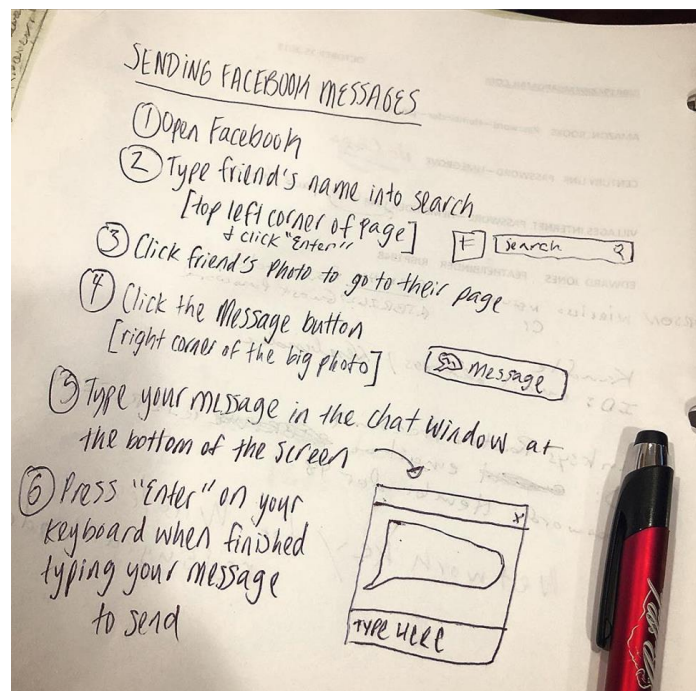 SENDING FACEBOOK MESSAGES
① Open Facebook
② Type friend's name into search
[top left corner of page]
& click "Enter"
F search
③ Click friend's photo to go to their page
④ Click the Message button
[right corner of the big photo]
Message
⑤ Type your message in the chat window at
the bottom of the screen
⑥ Press "Enter" on your
keyboard when finished
typing your message
to send
X
TYPE HERE